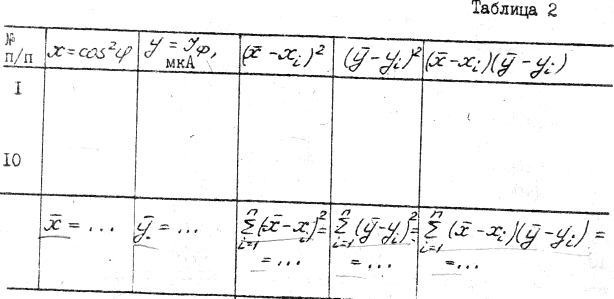 Таблица 2
№ п/п x = cos²φ y = Iф, мкА (x̄ − xᵢ)² (ȳ − yᵢ)² (x̄ − xᵢ)(ȳ − yᵢ)
I
10
x̄ = ... ȳ = ... ∑ᵢ₌₁ⁿ (x̄ − xᵢ)² = ∑ᵢ₌₁ⁿ (ȳ − yᵢ)² = ∑ᵢ₌₁ⁿ (x̄ − xᵢ)(ȳ − yᵢ) =
= ... = ... = ...